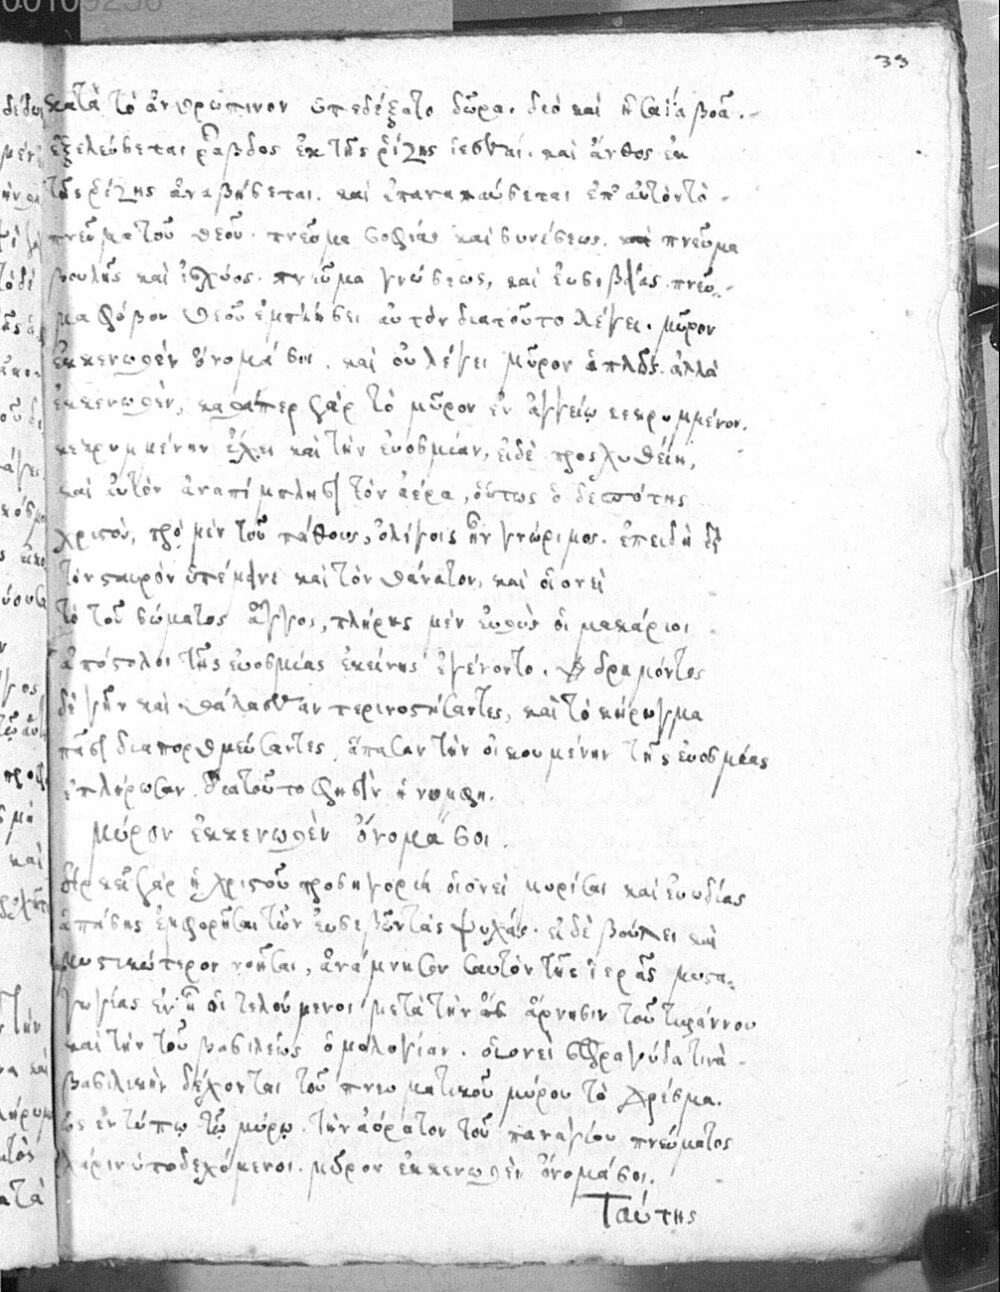 33
κατὰ τὸ ἀνθρώπινον ὑπεδέξατο δῶρα. διὸ καὶ ἡσαΐα βοᾶ.
ἐξελεύσεται ῥάβδος ἐκ τῆς ῥίζης ἰεσσαί. καὶ ἄνθος ἐκ
τῆς ῥίζης ἀναβήσεται. καὶ ἐπαναπαύσεται ἐπ' αὐτὸν τὸ
πνεῦμα τοῦ θεοῦ. πνεῦμα σοφίας καὶ συνέσεως. καὶ πνεῦμα
βουλῆς καὶ ἰσχύος. πνεῦμα γνώσεως, καὶ εὐσεβείας. πνεῦ
μα φόβου θεοῦ ἐμπλήσει αὐτόν διατοῦτο λέγει. μῦρον
ἐκκενωθὲν ὄνομά σοι. καὶ οὐ λέγει μῦρον ἁπλῶς. ἀλλὰ
ἐκκενωθὲν, καθάπερ γὰρ τὸ μῦρον ἐν ἀγγείῳ κεκρυμμένον,
κεκρυμμένην ἔχει καὶ τὴν εὐοσμίαν, εἰδὲ προσχυθείη,
καὶ αὐτὸν ἀναπίμπλησι τὸν ἀέρα, οὕτως ὁ δεσπότης
χριστὸς, πρὸ μὲν τοῦ πάθους, ὀλίγοις ἦν γνώριμος. ἐπειδὴ δὲ
τὸν σταυρὸν ὑπέμεινε καὶ τὸν θάνατον, καὶ οἱονεὶ
τὸ τοῦ σώματος ἄγγος, πλήρης μὲν εὐθὺς οἱ μακάριοι
ἀπόστολοι τῆς εὐοσμίας ἐκείνης ἐγένοντο. δραμόντες
δὲ γῆν καὶ θάλασσαν περινοστήσαντες, καὶ τὸ κήρυγμα
πᾶσι διαπορθμεύσαντες, ἅπασαν τὴν οἰκουμένην τῆς εὐοσμίας
ἐπλήρωσαν. διατοῦτο φησὶν ἡ νύμφη.
Μύρον ἐκκενωθὲν ὄνομά σοι.
ἀρκεῖ γὰρ ἡ χριστοῦ προσηγορία οἱονεὶ μυρίσαι καὶ εὐωδίας
ἁπάσης ἐμφορῆσαι τῶν εὐσεβῶν τὰς ψυχάς. εἰ δὲ βούλει καὶ
μυστικώτερον νοῆσαι, ἀνάμνησον σαυτὸν τῆς ἱερᾶς μυστα
γωγίας ἐν ᾗ οἱ τελούμενοι μετὰ τὴν ἄρνησιν τοῦ τυράννου
καὶ τὴν τοῦ βασιλέως ὁμολογίαν. οἱονεὶ σφραγίδα τινὰ
βασιλικὴν δέχονται τοῦ πνευματικοῦ μύρου τὸ χρίσμα.
ὡς ἐν τύπῳ τῷ μύρῳ. τὴν ἀόρατον τοῦ παναγίου πνεύματος
χάριν ὑποδεχόμενοι. μῦρον ἐκκενωθὲν ὄνομά σοι.
Ταύτης